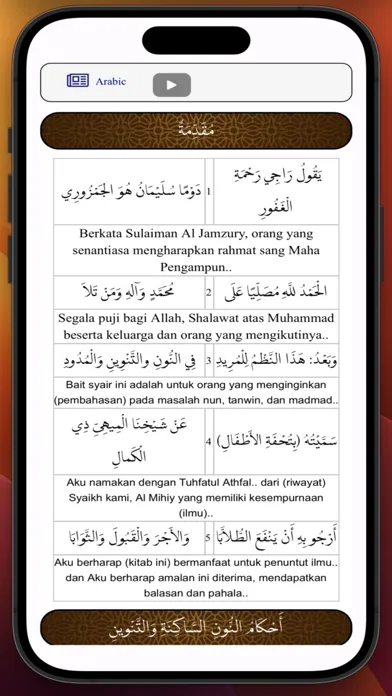 Arabic
مُقَدِّمَةٌ
يَقُولُ رَاجِي رَحْمَةِ الْغَفُورِ 1 دَوْمًا سُلَيْمَانُ هُوَ الجَمْزُورِي
Berkata Sulaiman Al Jamzury, orang yang
senantiasa mengharapkan rahmat sang Maha
Pengampun..
الْحَمْدُ للهِ مُصَلِّيًا عَلَى 2 مُحَمَّدٍ وَآلِهِ وَمَنْ تَلاَ
Segala puji bagi Allah, Shalawat atas Muhammad
beserta keluarga dan orang yang mengikutinya..
وَبَعْدُ: هَذَا النَّظْمُ لِلْمُرِيدِ 3 فِي النُّونِ والتَّنْوِينِ وَالْمُدُودِ
Bait syair ini adalah untuk orang yang menginginkan
(pembahasan) pada masalah nun, tanwin, dan madmad..
سَمَّيْتُهُ (بِتُحْفَةِ الأَطْفَالِ) 4 عَنْ شَيْخِنَا الْمِيهِيِّ ذِي الْكَمالِ
Aku namakan dengan Tuhfatul Athfal.. dari (riwayat)
Syaikh kami, Al Mihiy yang memiliki kesempurnaan
(ilmu)..
أَرْجُو بِهِ أَنْ يَنْفَعَ الطُّلاَّبَا 5 وَالأَجْرَ وَالْقَبُولَ وَالثَّوَابَا
Aku berharap (kitab ini) bermanfaat untuk penuntut ilmu..
dan Aku berharap amalan ini diterima, mendapatkan
balasan dan pahala..
أَحْكَامُ النُّونِ السَّاكِنَةِ وَالتَّنْوِينِ